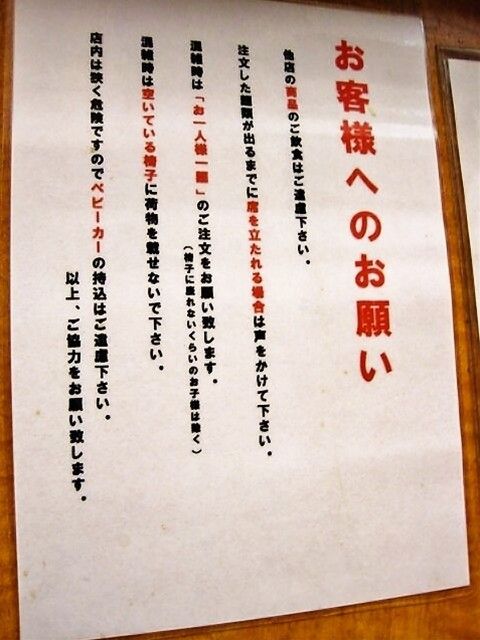 お客様へのお願い
他店の商品のご飲食はご遠慮下さい。
注文した麺類が出るまでに席を立たれる場合は声をかけて下さい。
混雑時は「お一人様一麺」のご注文をお願い致します。
(椅子に座れないくらいのお子様は除く)
混雑時は空いている椅子に荷物を載せないで下さい。
店内は狭く危険ですのでベビーカーの持込はご遠慮下さい。
以上、ご協力をお願い致します。